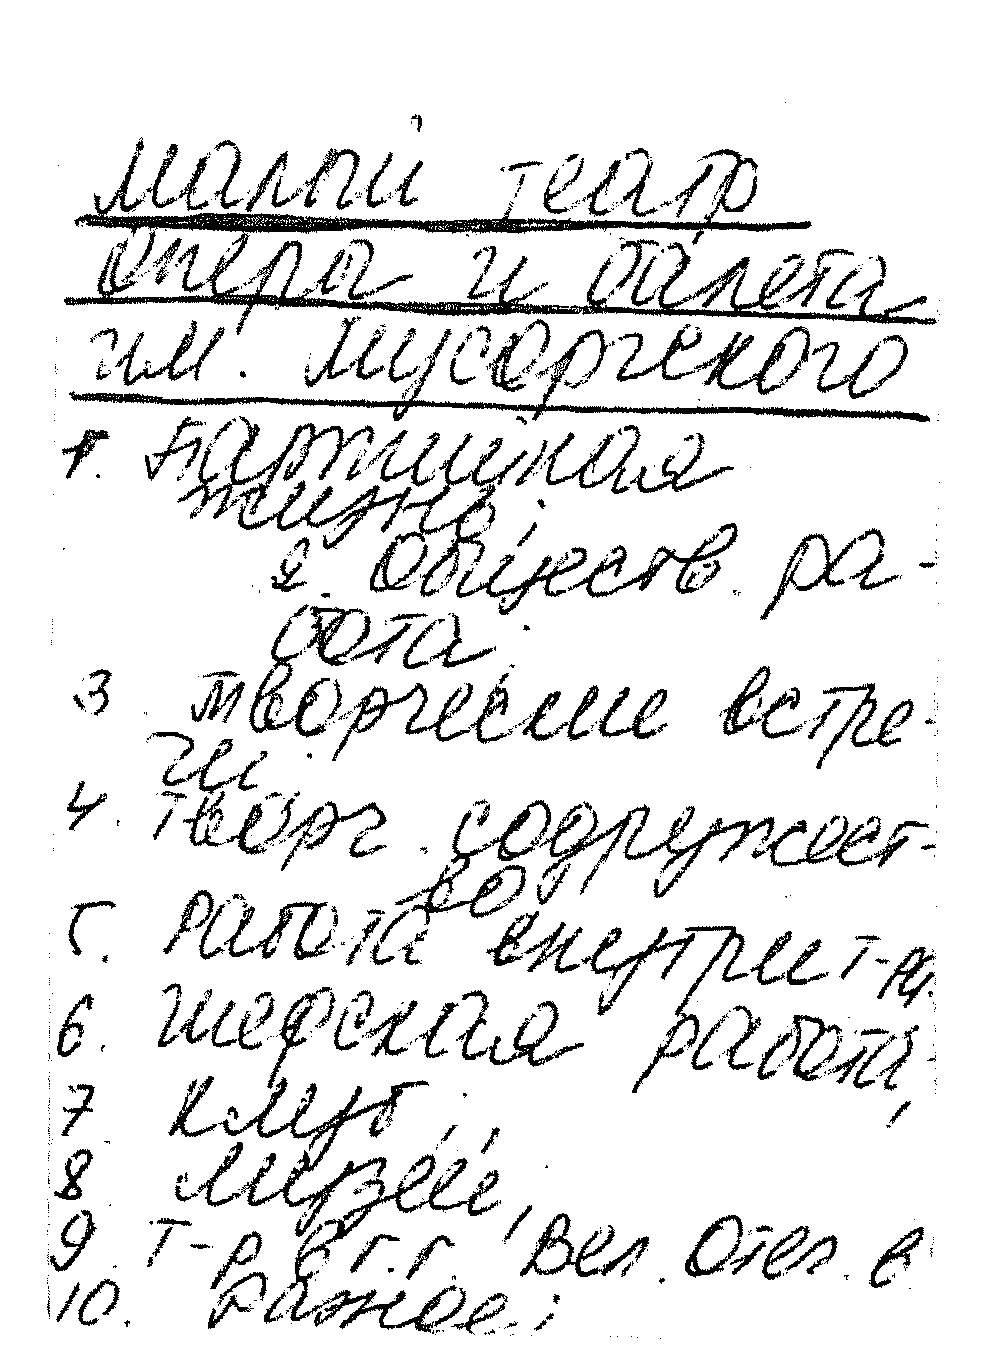 Малый театр
оперы и балета
им. Мусоргского
1. Партийная
жизнь;
2. Обществ. ра-
бота;
3. Творческие встре-
чи.
4. Творч. содружест-
во
5. Работа внутри т-ра.
6. Шефская работа,
7 Клуб,
8 Музей,
9 Т-р в г.г. Вел. Отеч. в
10. Разное;